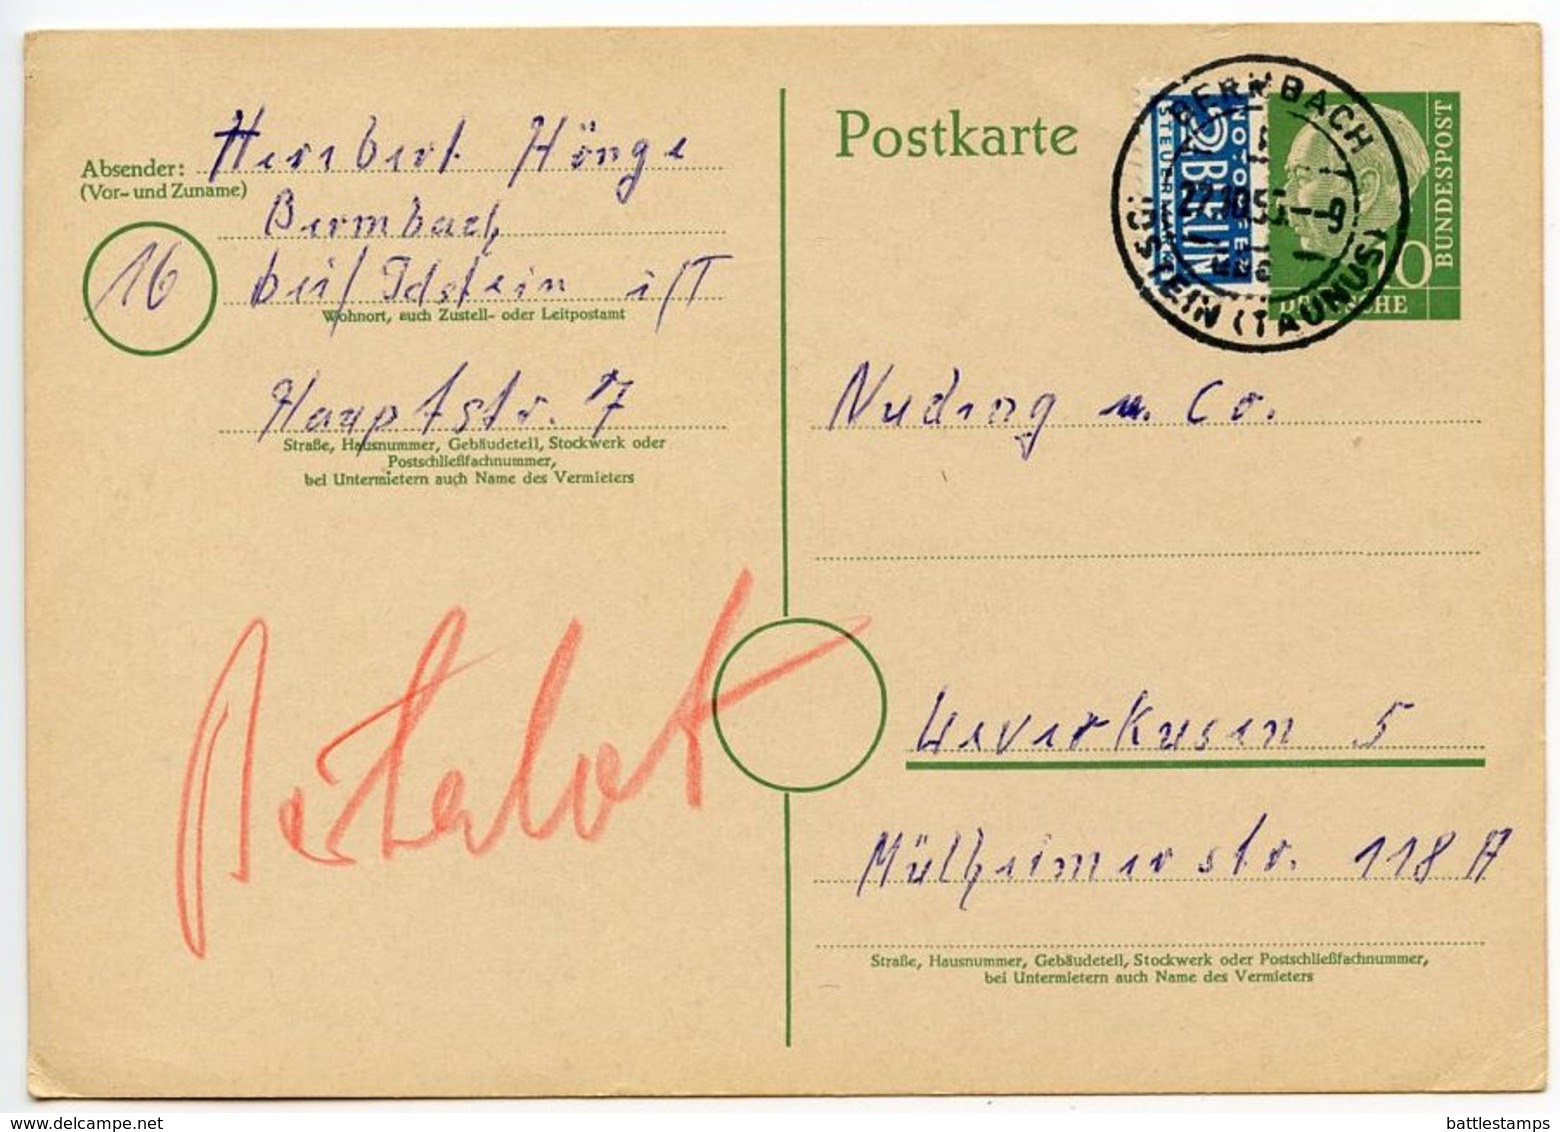 Absender: Herbert Hönge
(Vor- und Zuname)
Bermbach
bei/Idstein i/T
16
Wohnort, auch Zustell- oder Leitpostamt
Hauptstr. 7
Straße, Hausnummer, Gebäudeteil, Stockwerk oder
Postschließfachnummer,
bei Untermietern auch Name des Vermieters
Postkarte
2 NOTOPFER
BERLIN
STEUERMARKE
BERMBACH
27.10.55.--9
(TAUNUS)
DEUTSCHE
BUNDESPOST
10
Nuding u. Co.
Leverkusen 5
Mülheimerstr. 118 A
Straße, Hausnummer, Gebäudeteil, Stockwerk oder Postschließfachnummer,
bei Untermietern auch Name des Vermieters
delcampe.net
battlestamps